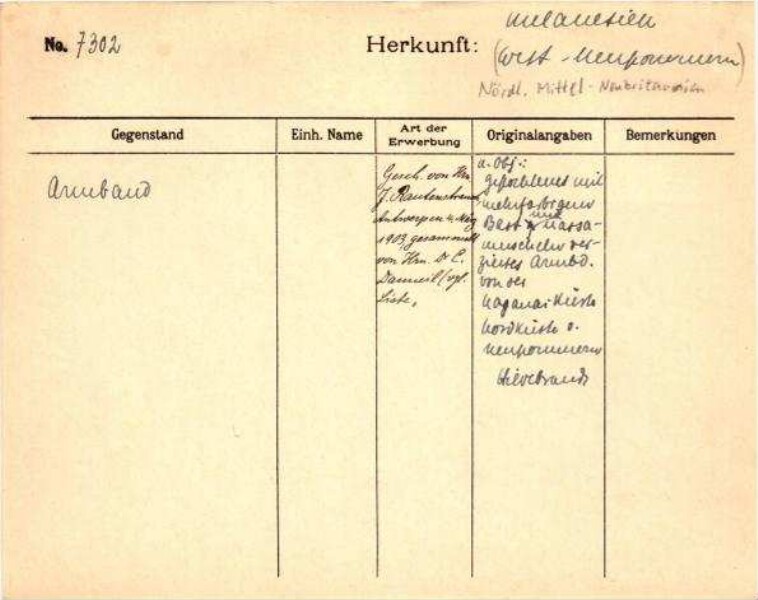 No. 7302
Herkunft: Melanesien
(West-Neupommern)
Nördl. Mittel-Neubritannien
Gegenstand
Einh. Name
Art der Erwerbung
Originalangaben
Bemerkungen
Armband
Gesch. von Hrn
J. Rautenstrauch
Antwerpen 4. Mrz
1903, gesammelt
von Hrn. Dr C.
Danneil (vgl.
Liste,
a. Obj.:
geflochtenes mit
mehrfarbigem
Bast und Nassa-
muscheln ver-
ziertes Armbd.
von der
Nakanaiküste
Nordküste v.
Neupommern
Hildebrandt